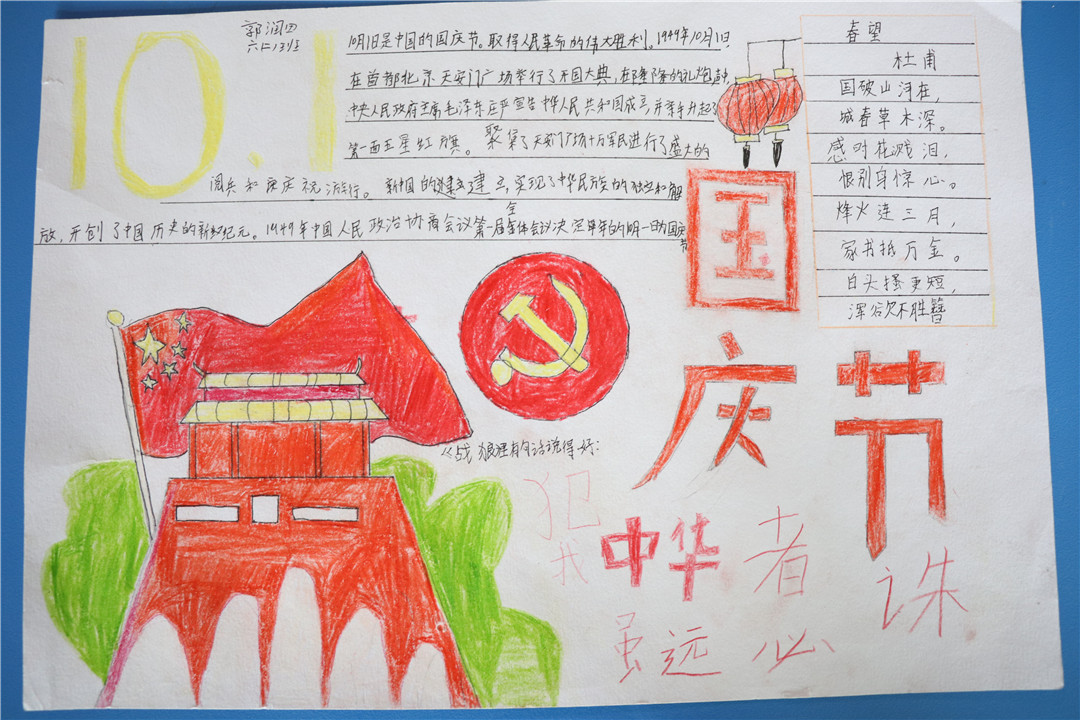 10.1
郭润田
六(13)班
10月1日是中国的国庆节。取得人民革命的伟大胜利。1949年10月1日,
在首都北京天安门广场举行了开国大典,在隆隆的礼炮声中,
中央人民政府主席毛泽东庄严宣告中华人民共和国成立,并亲手升起了
第一面五星红旗。聚集了天安门广场十万军民进行了盛大的
阅兵和庆祝游行。新中国的建立,实现了中华民族的独立和解
放,开创了中国历史的新纪元。1949年中国人民政治协商会议第一届全体会议决定每年的10月一日为国庆节
春望
杜甫
国破山河在,
城春草木深。
感时花溅泪,
恨别鸟惊心。
烽火连三月,
家书抵万金。
白头搔更短,
浑欲不胜簪
国
庆节
《战狼里有句话说得好:
犯我中华者
虽远必诛